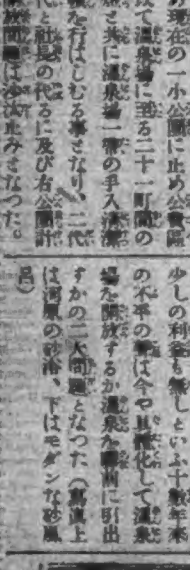 現在の一小公園に止め公
て溫泉場に至る二十一町間の
と共に溫泉場一帶の手入淸潔
を行はしむる事となり、二代
と社長の代るに及び右公園計
問題は沙汰止みとなつた。
少しの利益も無しといふ十數年來
の不平の聲は今や具體化して溫泉
場を開放するか溫泉を前に引出
すかの二大問題となつた(寫眞上
は河原の砂浴、下はモダンな砂風
呂)